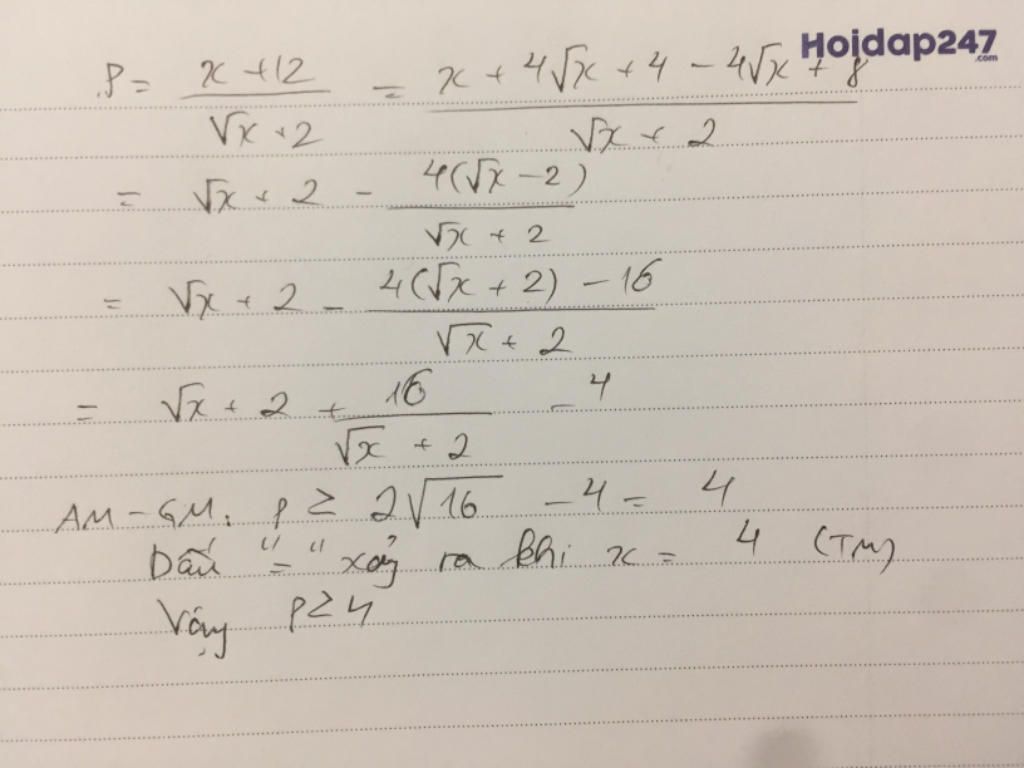 Hoidap247
.com
P = \frac{x + 12}{\sqrt{x} + 2} = \frac{x + 4\sqrt{x} + 4 - 4\sqrt{x} + 8}{\sqrt{x} + 2}
= \sqrt{x} + 2 - \frac{4(\sqrt{x} - 2)}{\sqrt{x} + 2}
= \sqrt{x} + 2 - \frac{4(\sqrt{x} + 2) - 16}{\sqrt{x} + 2}
= \sqrt{x} + 2 + \frac{16}{\sqrt{x} + 2} - 4
AM-GM: P ≥ 2\sqrt{16} - 4 = 4
Dấu "=" xảy ra khi x = 4 (TM)
Vậy P ≥ 4